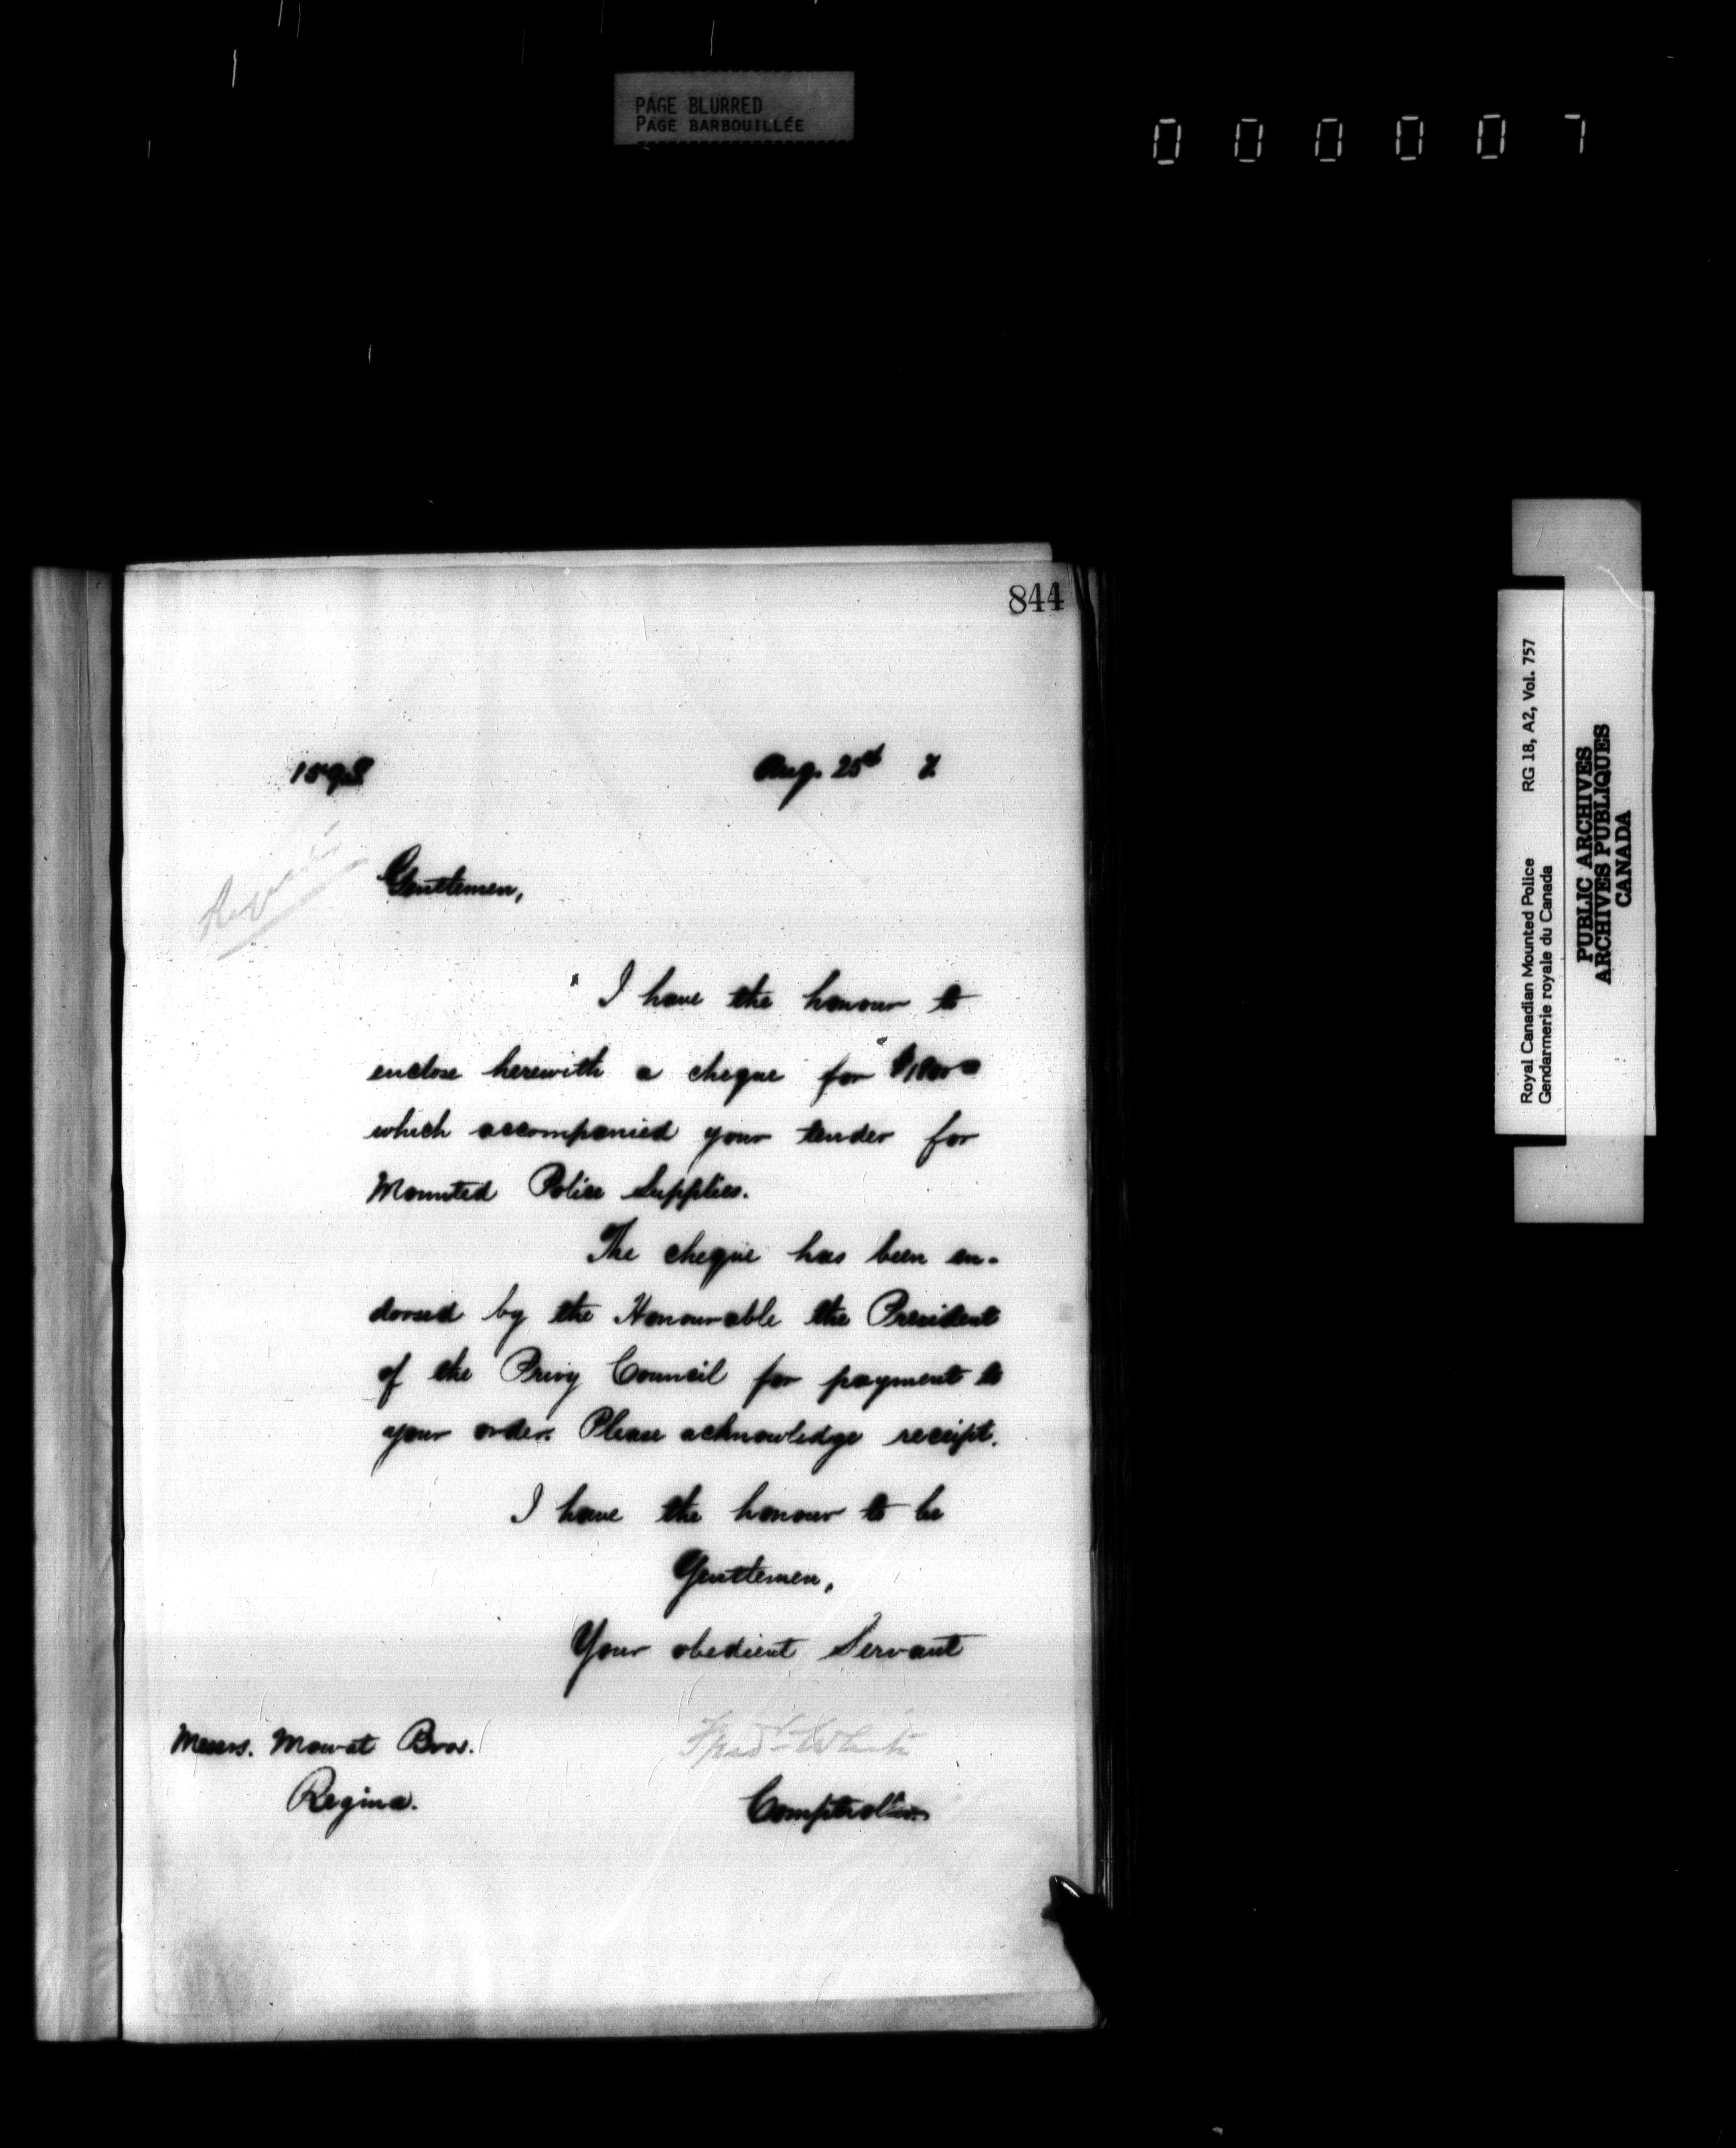 PAGE BLURRED
PAGE BARBOUILLÉE
000007
844
Aug. 25th
Gentlemen,
I have the honour to
enclose herewith a cheque for
which accompanied your tender for
Mounted Police Supplies.
The cheque has been en-
dorsed by the Honourable the President
of the Privy Council for payment to
your order. Please acknowledge receipt.
I have the honour to be
Gentlemen,
Your obedient Servant
Fred White
Comptroller
Messrs. Mowat Bros.
Regina.
Royal Canadian Mounted Police RG 18, A2, Vol. 757
Gendarmerie royale du Canada
PUBLIC ARCHIVES
ARCHIVES PUBLIQUES
CANADA